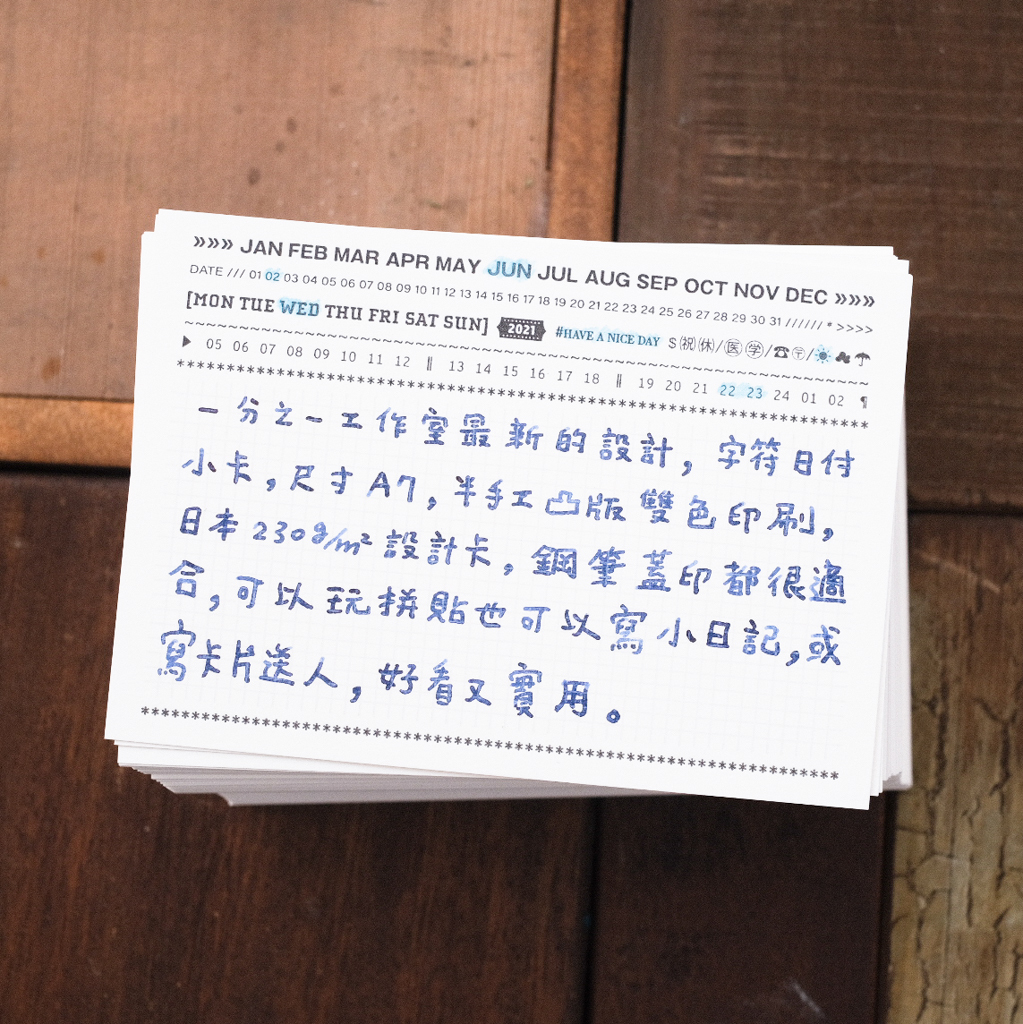 »»» JAN FEB MAR APR MAY JUN JUL AUG SEP OCT NOV DEC »»»
DATE /// 01 02 03 04 05 06 07 08 09 10 11 12 13 14 15 16 17 18 19 20 21 22 23 24 25 26 27 28 29 30 31 ////// * >>>>
[MON TUE WED THU FRI SAT SUN] 2021 #HAVE A NICE DAY S㊗㊡/㊩㊫/☎〶/☀☁☂
~~~~~~~~~~~~~~~~~~~~~~~~~~~~~~~~~~~~~~~~~~~~~~~~~~~~~~~~~~~~
▶ 05 06 07 08 09 10 11 12 ‖ 13 14 15 16 17 18 ‖ 19 20 21 22 23 24 01 02 ¶
************************************************************
一分之一工作室最新的設計，字符日付
小卡，尺寸A7，半手工凸版雙色印刷，
日本230g/m²設計卡，鋼筆蓋印都很適
合，可以玩拼貼也可以寫小日記，或
寫卡片送人，好看又實用。
************************************************************